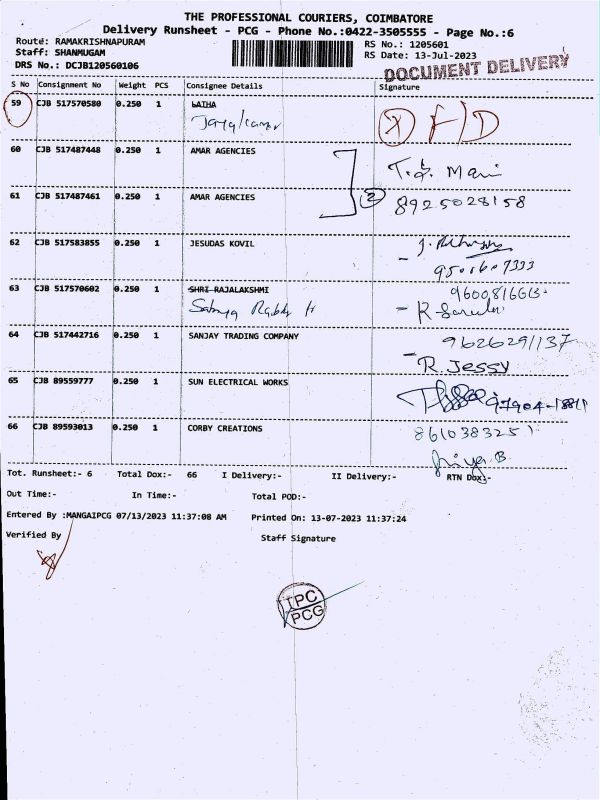 THE PROFESSIONAL COURIERS, COIMBATORE
Delivery Runsheet - PCG - Phone No.:0422-3505555 - Page No.:6
Route: RAMAKRISHNAPURAM
RS No.: 1205601
Staff: SHANMUGAM
RS Date: 13-Jul-2023
DRS No.: DCJB120560106
DOCUMENT DELIVERY
S No Consignment No Weight PCS Consignee Details Signature
59 CJB 517570580 0.250 1 LATHA
X F/D
60 CJB 517487448 0.250 1 AMAR AGENCIES
Mari
61 CJB 517487461 0.250 1 AMAR AGENCIES 2 8925028158
62 CJB 517583855 0.250 1 JESUDAS KOVIL
9500607333
63 CJB 517570602 0.250 1 SHRI RAJALAKSHMI
64 CJB 517442716 0.250 1 SANJAY TRADING COMPANY 9626291137
R. Jessy
65 CJB 89559777 0.250 1 SUN ELECTRICAL WORKS
66 CJB 89593013 0.250 1 CORBY CREATIONS 8610383251
Priya B
Tot. Runsheet:- 6 Total Dox:- 66 I Delivery:- II Delivery:- RTN Dox:-
Out Time:- In Time:- Total POD:-
Entered By :MANGAIPCG 07/13/2023 11:37:08 AM Printed On: 13-07-2023 11:37:24
Verified By Staff Signature
TPC
PCG